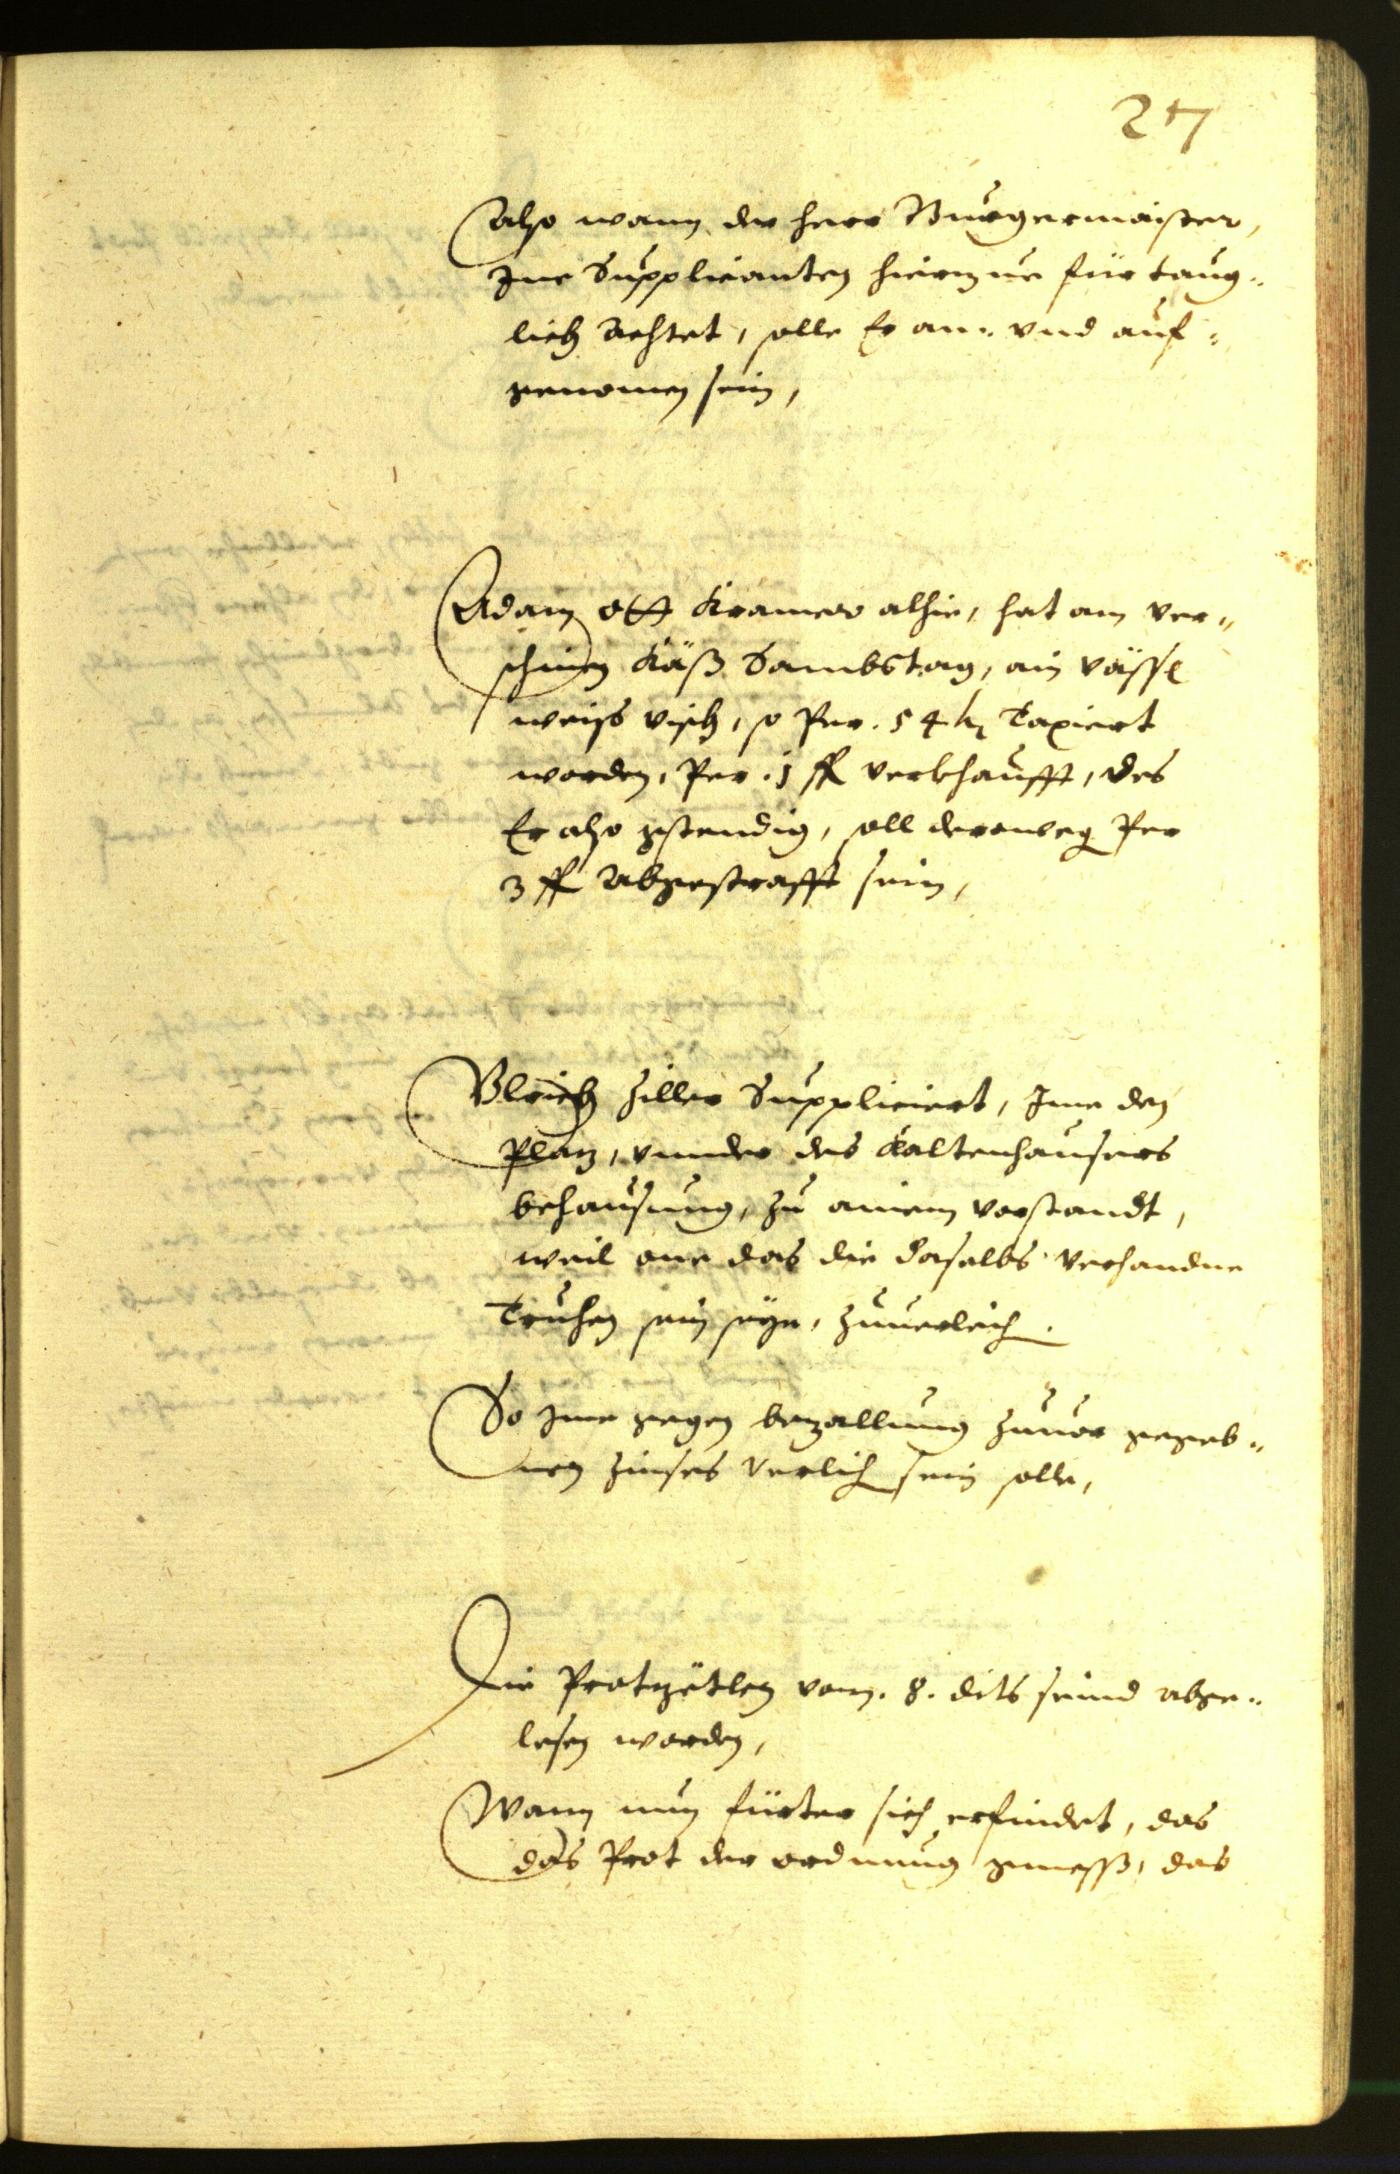 27
also wann der herr Burgermaister,
Ine Supplicanten hierzue für taug¬
lich Achtet, solle Er an- vnd auf¬
genomen sein,
Adam Ott Kramer alhie, hat am ver¬
schinen Käß Sambstag, ain Vässl
weiss visch, so Per. 54 kr Taxiert
worden, Per. 1 fl verkhaufft, des
Er also gstendig, soll deroweg Per
3 fl Abgestrafft sein,
Vlrich Ziller Suppliciert, Ime den
Plaz, vnnder des Kaltenhausers
behausung, zu ainem vorstandt,
weil one das die daselbs verhandne
Truhen sein seye, zuuerleich.
So Ime gegen bezallung zuuor gegeb¬
nen Zinses Verlich sein solle,
Die Protzëtlen vom. 8. dits seind abge¬
lesen worden,
Wann nun fürter sich erfindet, das
das Prot der ordnung gemesß, das